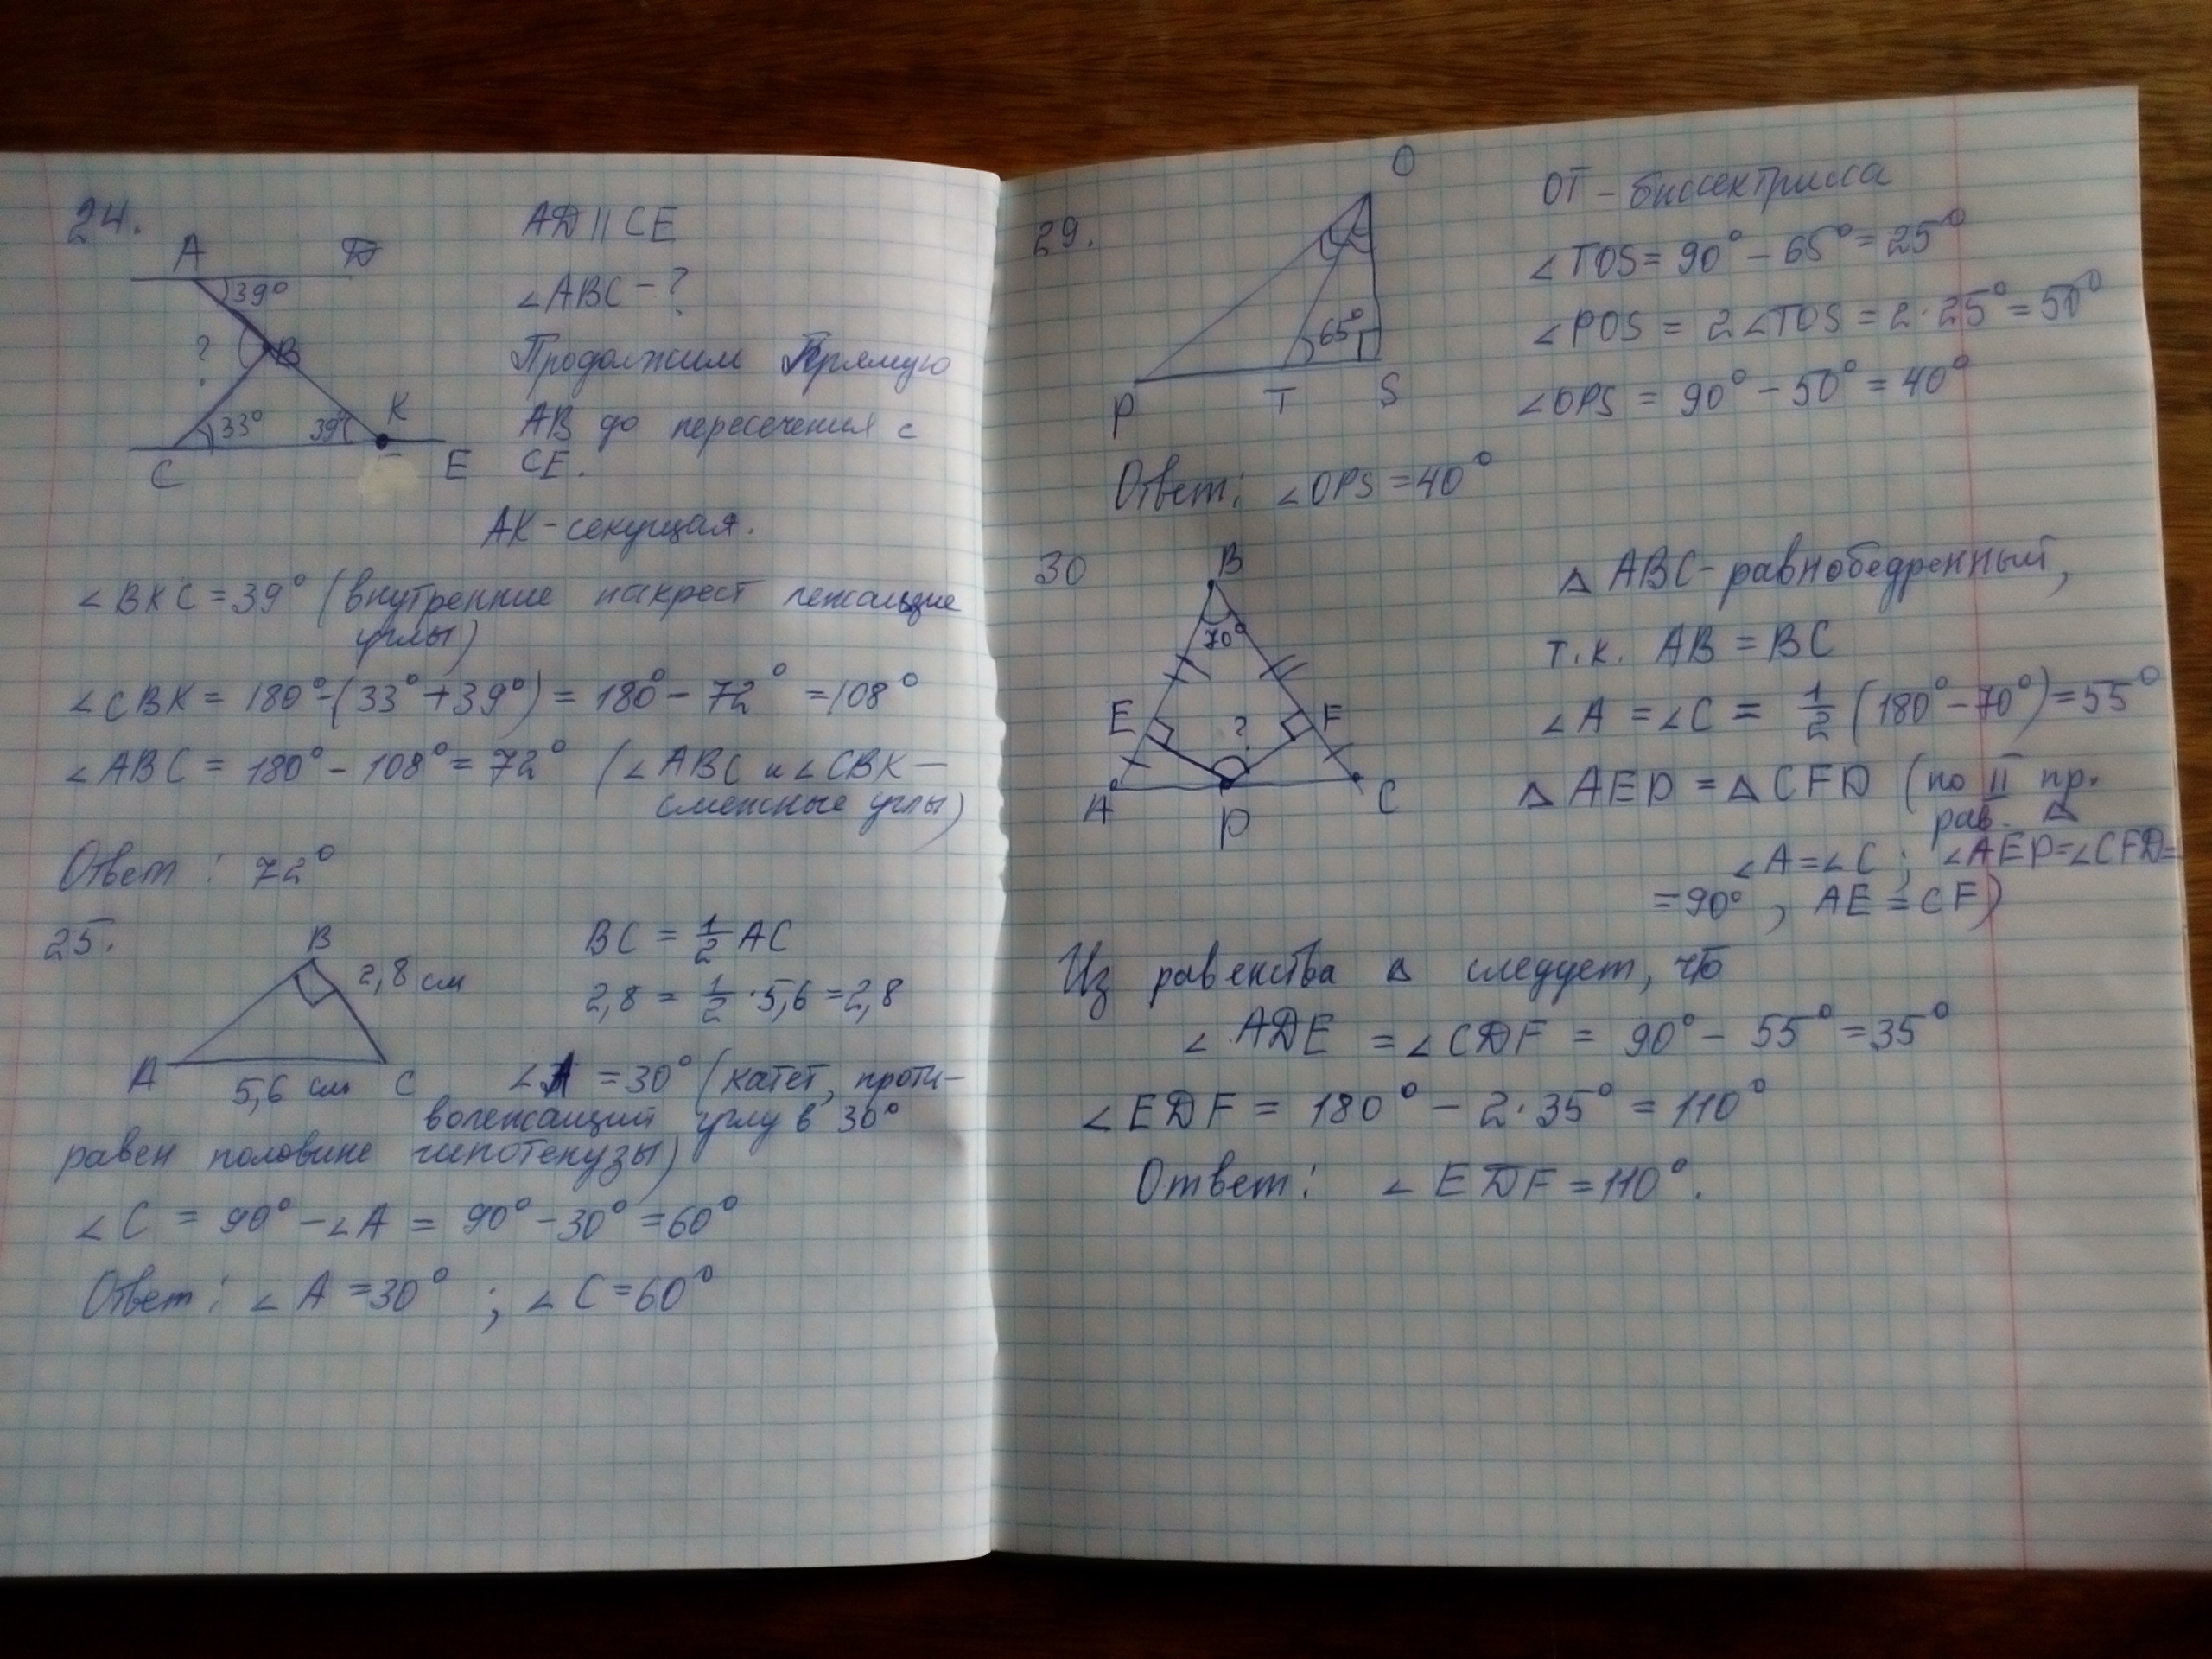 24.
A D
39°
? B
33° 39° K
C E
AD || CE
∠ABC - ?
Продолжим Прямую
AB до пересечения с
CE.
AK - секущая.
∠BKC = 39° (внутренние накрест лежащие
углы)
∠CBK = 180° - (33° + 39°) = 180° - 72° = 108°
∠ABC = 180° - 108° = 72° (∠ABC и ∠CBK —
смежные углы)
Ответ: 72°
25.
B
2,8 см
A 5,6 см C
BC = 1/2 AC
2,8 = 1/2 · 5,6 = 2,8
∠A = 30° (катет, проти-
волежащий углу в 30°
равен половине гипотенузы)
∠C = 90° - ∠A = 90° - 30° = 60°
Ответ: ∠A = 30° ; ∠C = 60°
29.
O
65°
P T S
OT - биссектрисса
∠TOS = 90° - 65° = 25°
∠POS = 2∠TOS = 2 · 25° = 50°
∠OPS = 90° - 50° = 40°
Ответ: ∠OPS = 40°
30
B
70°
E ? F
A C
D
△ ABC - равнобедренный,
т.к. AB = BC
∠A = ∠C = 1/2 (180° - 70°) = 55°
△ AED = △ CFD (по II пр.
рав. △
∠A = ∠C ; ∠AED = ∠CFD =
= 90° , AE = CF)
Из равенства △ следует, что
∠ADE = ∠CDF = 90° - 55° = 35°
∠EDF = 180° - 2 · 35° = 110°
Ответ: ∠EDF = 110°.